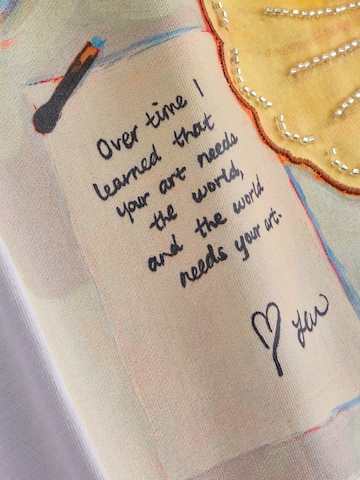 Over time I
learned that
your art needs
the world,
and the world
needs your art.